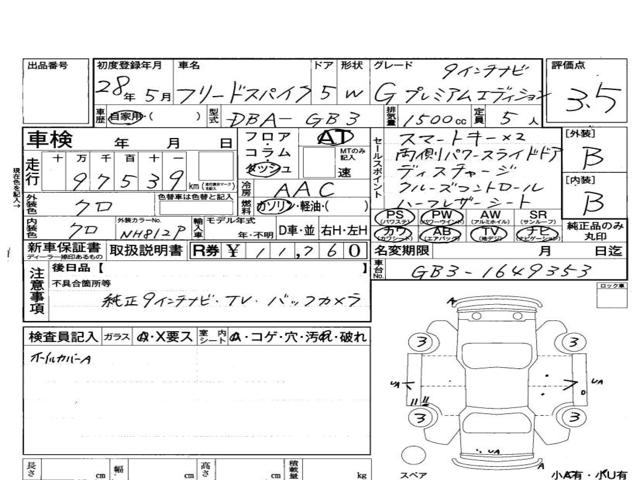 出品番号 初度登録年月 車名 ドア 形状 グレード 評価点
28年 5月 フリードスパイク 5 W 9インチナビ
Gプレミアムエディション 3.5
車歴 自家用・( ) 型式 DBA-GB3 排気量 1500cc 定員 5人
車検 年 月 日 フロア・コラム・ダッシュ AT MTのみ記入 速
セールスポイント スマートキー×2 [外装]
両側パワースライドドア B
走行 十 万 千 百 十 一 ディスチャージ
97539 km クルーズコントロール [内装]
現在色を記入→ 外装色 クロ 色替車は色替と記入 冷房 AAC ハーフレザーシート B
燃料 ガソリン・軽油・( )
PS (パワステ) PW (パワーウインド) AW (アルミホイル) SR (サンルーフ)
内装色 クロ 外装カラーNo. NH812P 輸入車 モデル年式 年・不明 D車・並 右H・左H
カワ (カワシート) AB (エアバック) TV (地デジ) ナビ (ナビゲーション) 純正品のみ丸印
新車保証書 ディーラー捺印あるもの 取扱説明書 R券 ¥11,760 名変期限 月 日迄
注意事項 後日品【 】 車台No. GB3-1649353
不具合箇所等 ロック車
純正9インチナビ・TV・バックカメラ
検査員記入 ガラス A・X要ス 室内シート A・コゲ・穴・汚れ・破れ
ホイルカバーA
A
3 3
UA UA
3 3
UA A
長さ cm 幅 cm 高さ cm 積載量 kg スペア 小A有・小U有